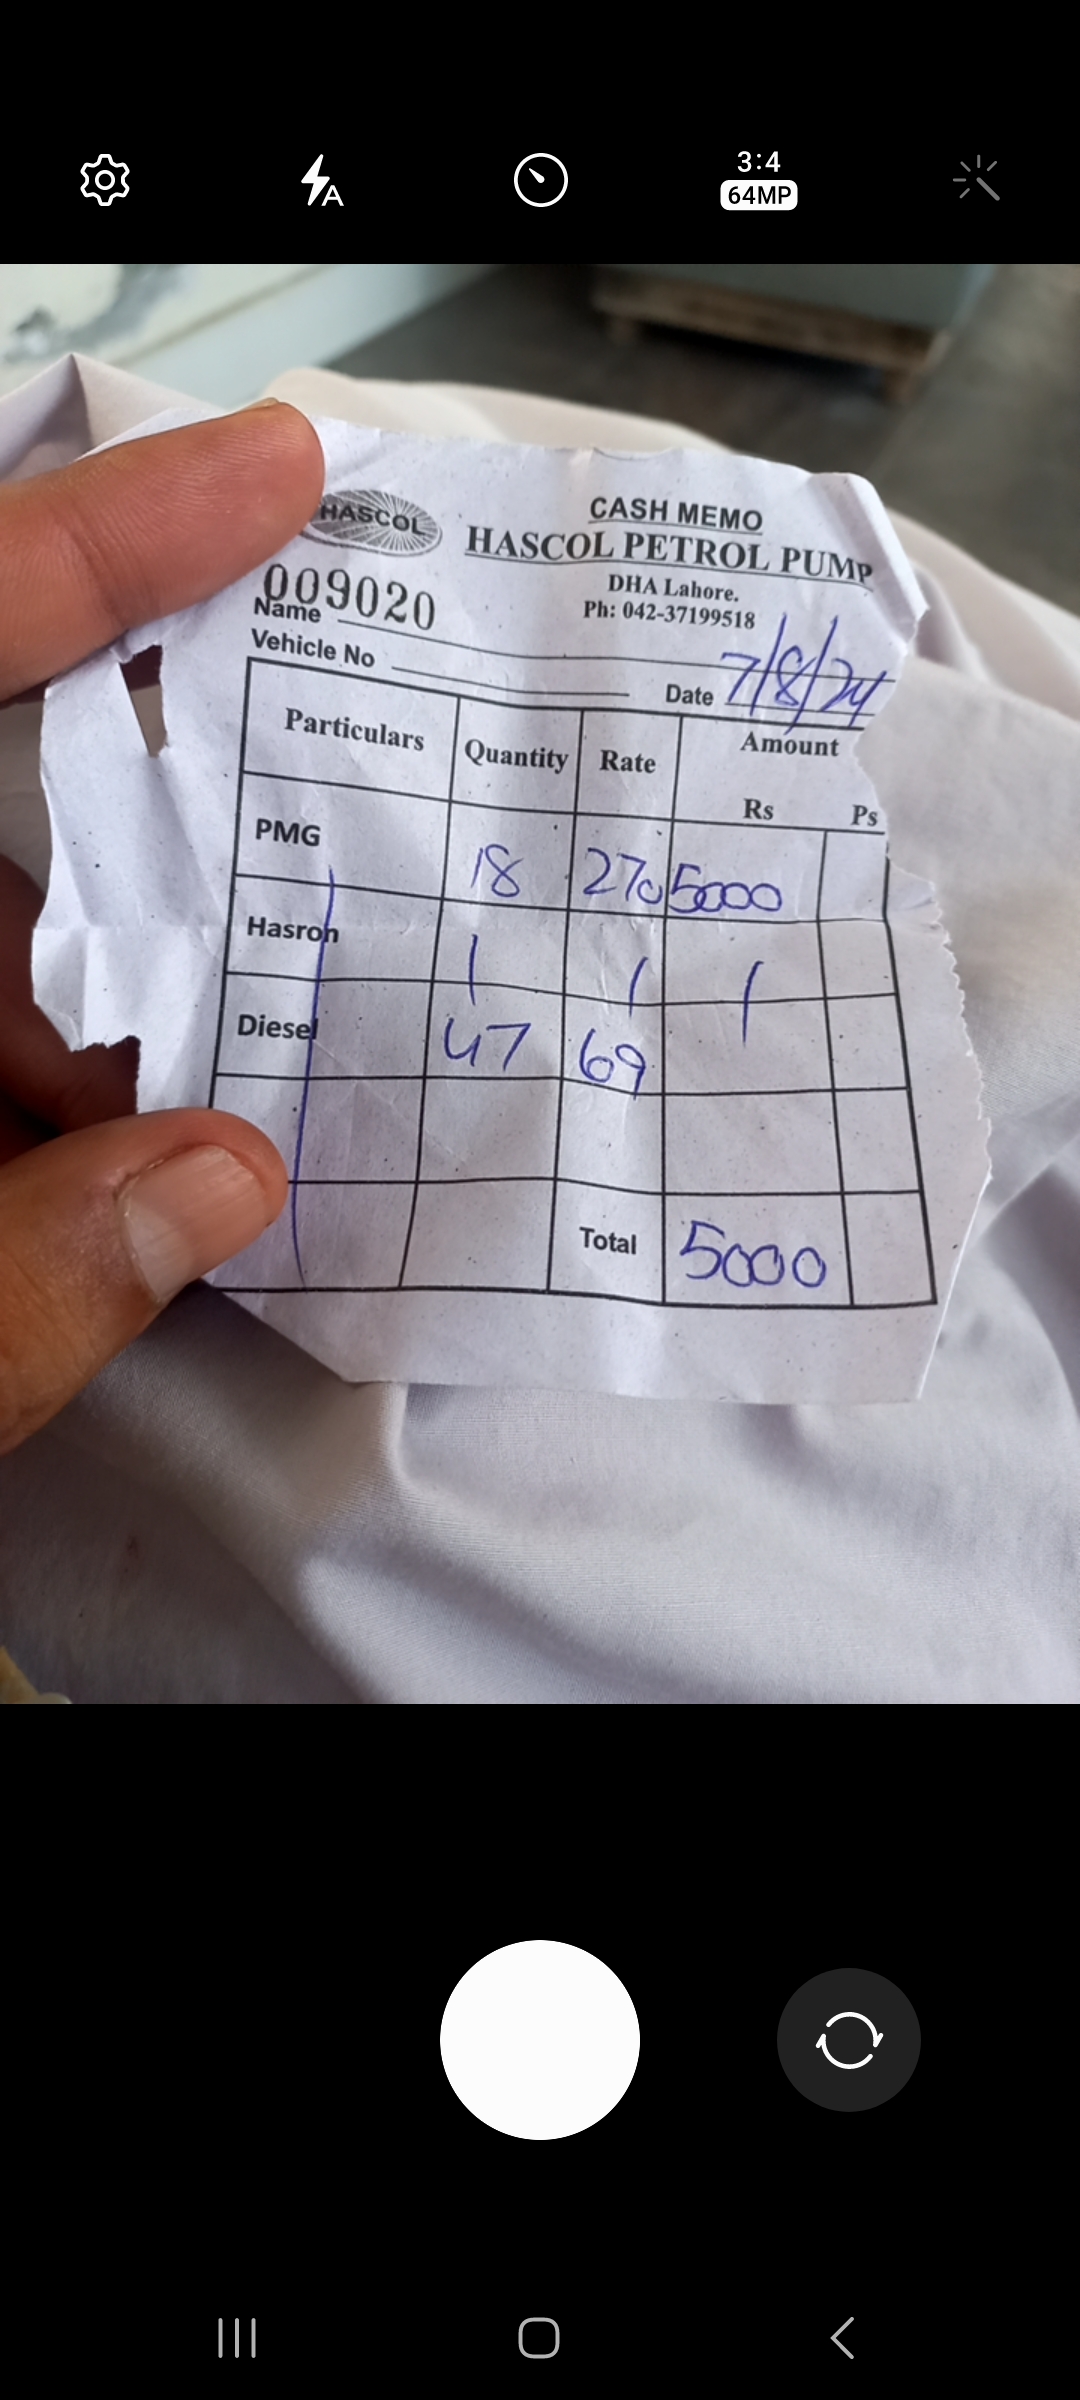 3:4
64MP
HASCOL
CASH MEMO
HASCOL PETROL PUMP
DHA Lahore.
Ph: 042-37199518
009020
Name
Vehicle No
Date 7/8/24
Particulars Quantity Rate Amount
Rs Ps
PMG 18 270 5000
Hasron / / /
Diesel 47 69
Total 5000